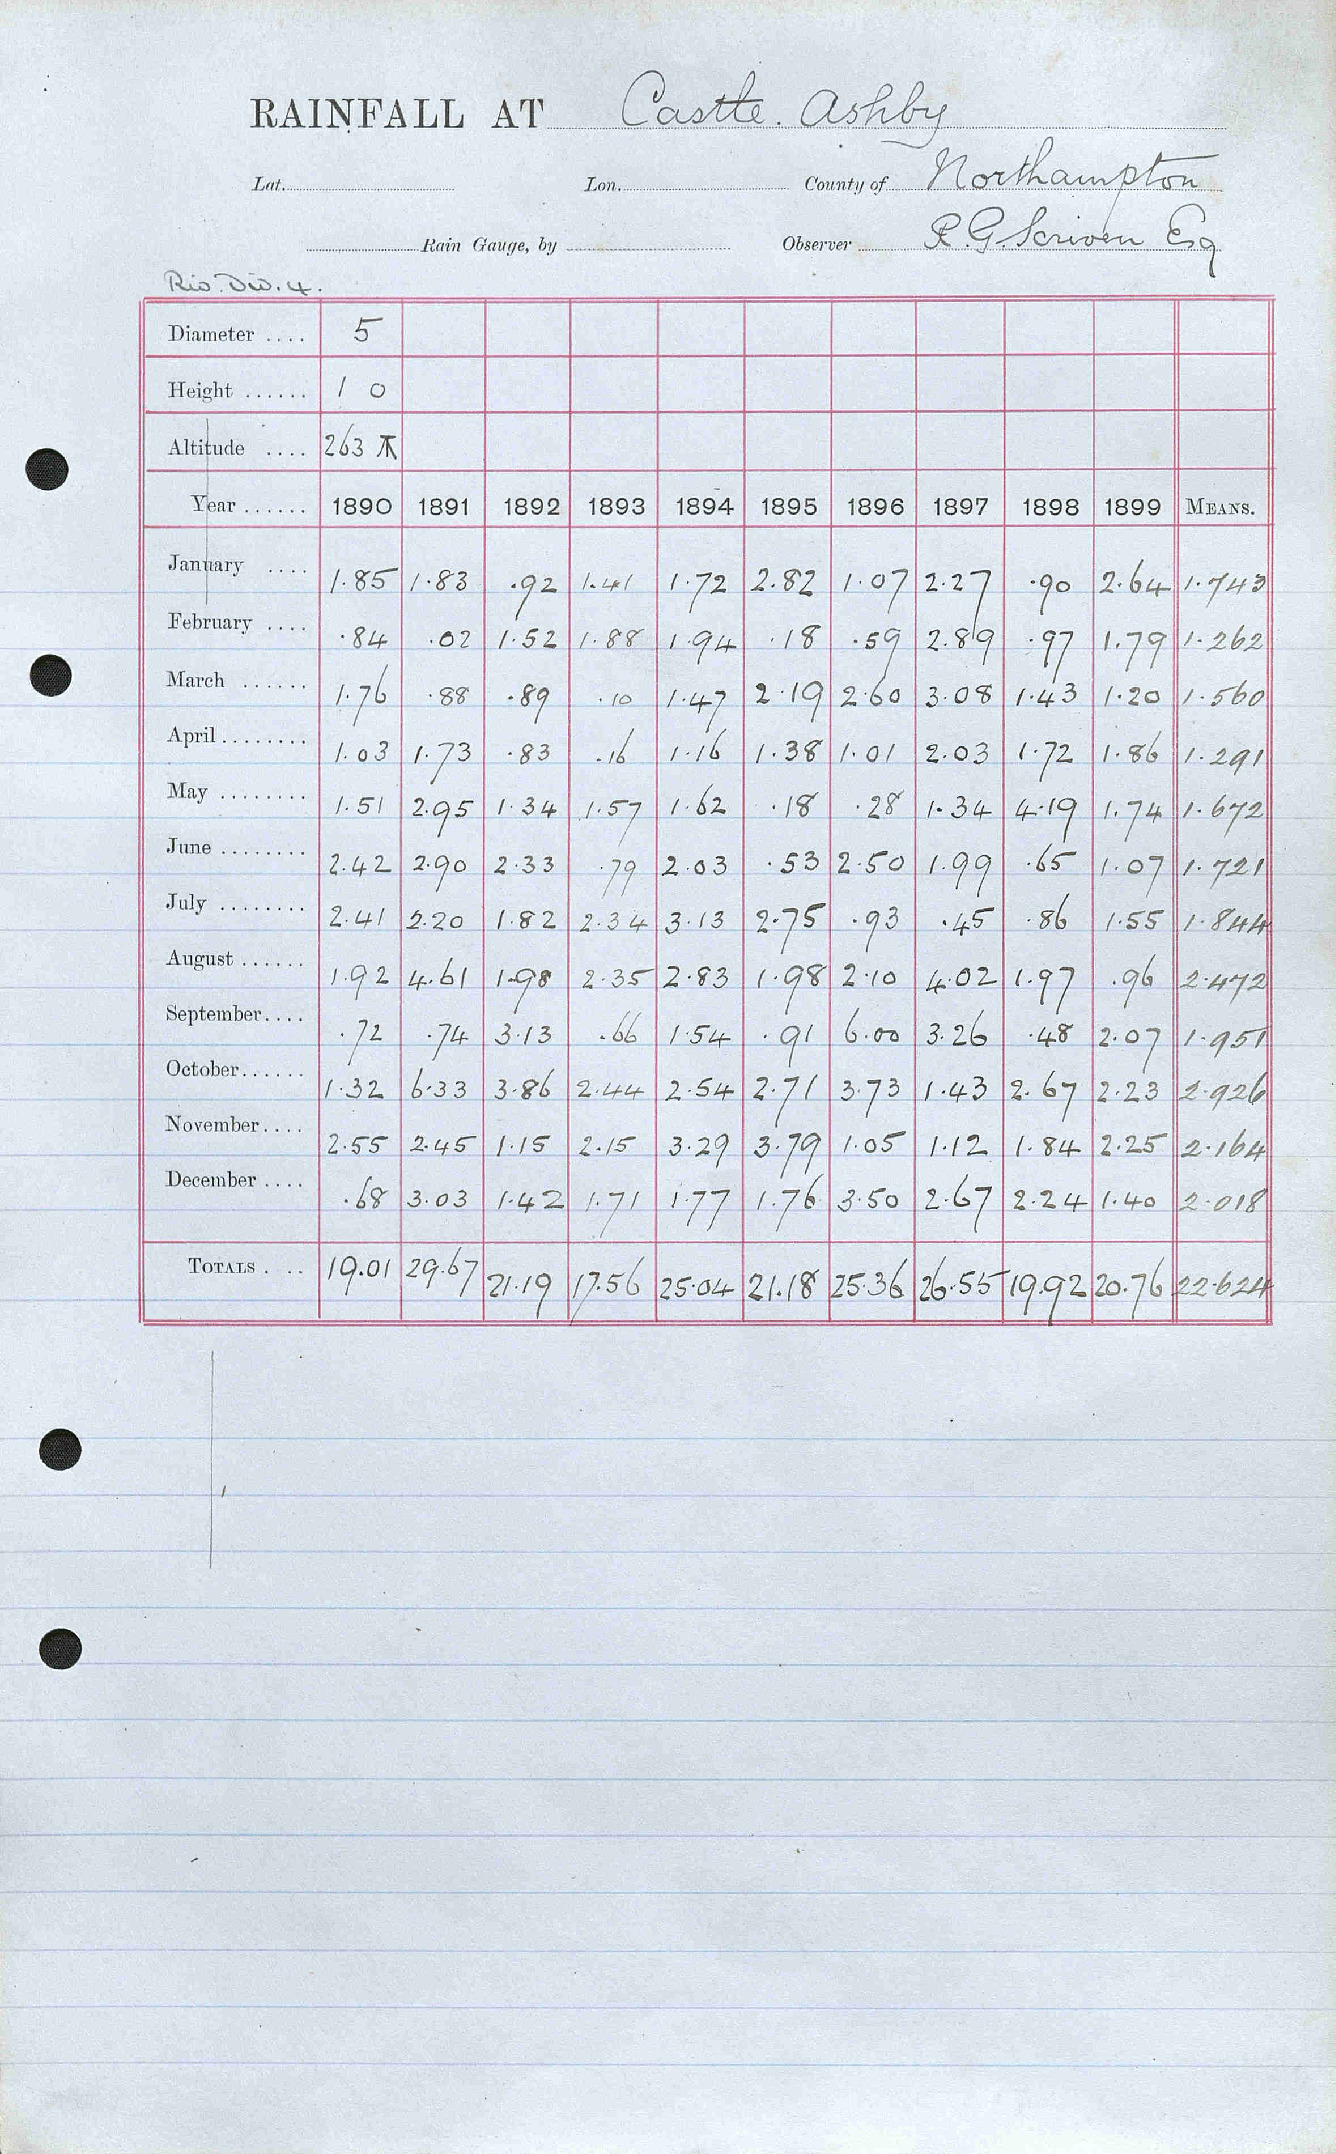 RAINFALL AT Castle. Ashby
Lat. Lon. County of Northampton
Rain Gauge, by Observer R. G. Scriven Esq
Riv. Div. 4.
Diameter .... 5
Height ...... 1 0
Altitude .... 263
Year ...... 1890 1891 1892 1893 1894 1895 1896 1897 1898 1899 MEANS.
January .... 1.85 1.83 .92 1.41 1.72 2.82 1.07 2.27 .90 2.64 1.743
February .... .84 .02 1.52 1.88 1.94 .18 .59 2.89 .97 1.79 1.262
March ...... 1.76 .88 .89 .10 1.47 2.19 2.60 3.08 1.43 1.20 1.560
April ........ 1.03 1.73 .83 .16 1.16 1.38 1.01 2.03 1.72 1.86 1.291
May ........ 1.51 2.95 1.34 1.57 1.62 .18 .28 1.34 4.19 1.74 1.672
June ........ 2.42 2.90 2.33 .79 2.03 .53 2.50 1.99 .65 1.07 1.721
July ........ 2.41 2.20 1.82 2.34 3.13 2.75 .93 .45 .86 1.55 1.844
August ...... 1.92 4.61 1.98 2.35 2.83 1.98 2.10 4.02 1.97 .96 2.472
September .... .72 .74 3.13 .66 1.54 .91 6.00 3.26 .48 2.07 1.951
October ...... 1.32 6.33 3.86 2.44 2.54 2.71 3.73 1.43 2.67 2.23 2.926
November .... 2.55 2.45 1.15 2.15 3.29 3.79 1.05 1.12 1.84 2.25 2.164
December .... .68 3.03 1.42 1.71 1.77 1.76 3.50 2.67 2.24 1.40 2.018
TOTALS . .. 19.01 29.67 21.19 17.56 25.04 21.18 25.36 26.55 19.92 20.76 22.624